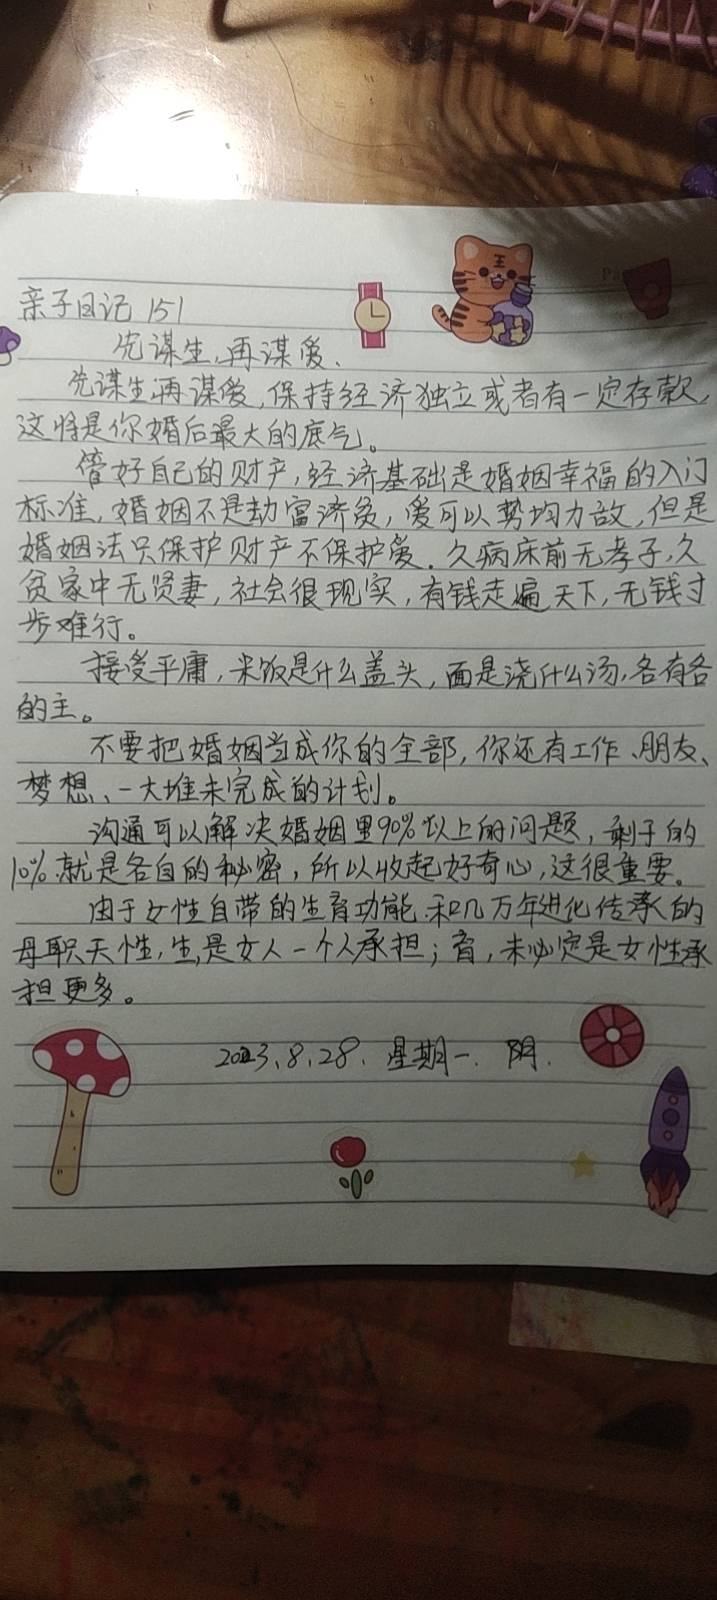 亲子日记 151
先谋生,再谋爱.
先谋生,再谋爱,保持经济独立或者有一定存款,
这将是你婚后最大的底气。
管好自己的财产,经济基础是婚姻幸福的入门
标准,婚姻不是劫富济贫,爱可以势均力敌,但是
婚姻法只保护财产不保护爱.久病床前无孝子,久
贫家中无贤妻,社会很现实,有钱走遍天下,无钱寸
步难行。
接受平庸,米饭是什么盖头,面是浇什么汤,各有各
的主。
不要把婚姻当成你的全部,你还有工作、朋友、
梦想、一大堆未完成的计划。
沟通可以解决婚姻里90%以上的问题,剩于的
10%.就是各自的秘密,所以收起好奇心,这很重要。
由于女性自带的生育功能.和几万年进化传承的
母职天性,生,是女人一个人承担;育,未必定是女性承
担更多。
2023.8.28. 星期一. 阴.